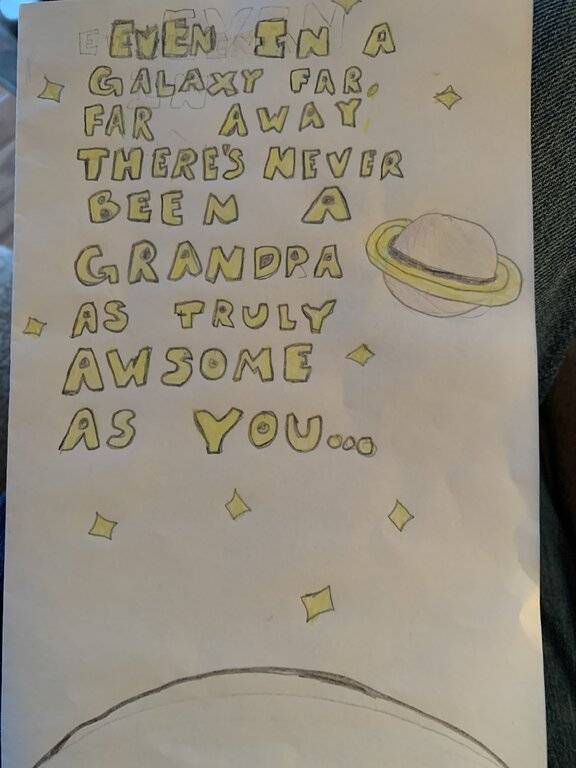 EVEN IN A
GALAXY FAR,
FAR AWAY
THERE'S NEVER
BEEN A
GRANDPA
AS TRULY
AWSOME
AS YOU...